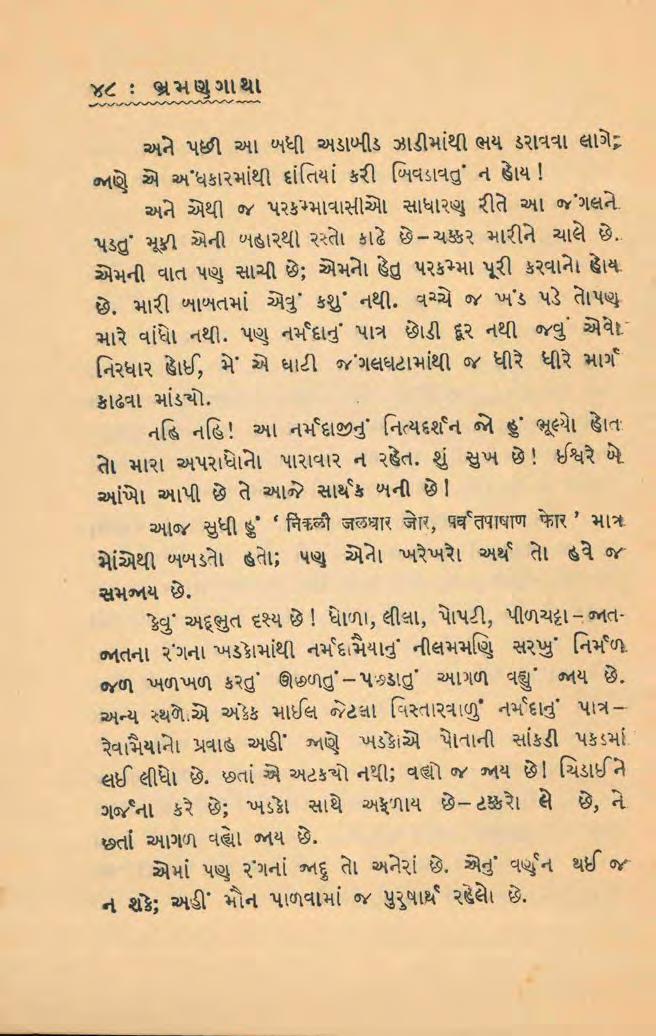 ૪૮ : ભ્રમણગાથા
અને પછી આ બધી અડાબીડ ઝાડીમાંથી ભય ડરાવવા લાગે;
જાણે એ અંધકારમાંથી દાંતિયાં કરી બિવડાવતું ન હોય !
અને એથી જ પરકમ્માવાસીઓ સાધારણ રીતે આ જંગલને
પડતું મૂકી એની બહારથી રસ્તો કાઢે છે–ચક્કર મારીને ચાલે છે.
એમની વાત પણ સાચી છે; એમનો હેતુ પરકમ્મા પૂરી કરવાનો હોય
છે. મારી બાબતમાં એવું કશું નથી. વચ્ચે જ ખંડ પડે તોપણ
મારે વાંધો નથી. પણ નર્મદાનું પાત્ર છોડી દૂર નથી જવું એવો
નિરધાર હોઈ, મેં એ ઘાટી જંગલઘટામાંથી જ ધીરે ધીરે માર્ગ
કાઢવા માંડયો.
નહિ નહિ! આ નર્મદાજીનું નિત્યદર્શન જો હું ભૂલ્યો હોત
તો મારા અપરાધોનો પારાવાર ન રહેત. શું સુખ છે! ઈશ્વરે બે
આંખો આપી છે તે આજે સાર્થક બની છે!
આજ સુધી હું ‘ निकली जलधार जोर, पर्वतपाषाण फोर ’ માત્ર
મોંએથી બબડતો હતો; પણ એનો ખરેખરો અર્થ તો હવે જ
સમજાય છે.
કેવું અદ્દભુત દૃશ્ય છે! ધોળા, લીલા, પોપટી, પીળચટ્ટા–જાત-
જાતના રંગના ખડકોમાંથી નર્મદામૈયાનું નીલમમણિ સરખું નિર્મળ
જળ ખળખળ કરતું ઊછળતું–પછડાતું આગળ વહ્યું જાય છે.
અન્ય સ્થળે એ અકેક માઈલ જેટલા વિસ્તારવાળું નર્મદાનું પાત્ર–
રેવામૈયાનો પ્રવાહ અહીં જાણે ખડકોએ પોતાની સાંકડી પકડમાં
લઈ લીધો છે. છતાં એ અટકયો નથી; વહ્યો જ જાય છે! ચિડાઈને
ગર્જના કરે છે; ખડકો સાથે અફળાય છે–ટક્કરો લે છે, ને
છતાં આગળ વહ્યો જાય છે.
એમાં પણ રંગનાં જાદુ તો અનેરાં છે. એનું વર્ણન થઈ જ
ન શકે; અહીં મૌન પાળવામાં જ પુરુષાર્થ રહેલો છે.